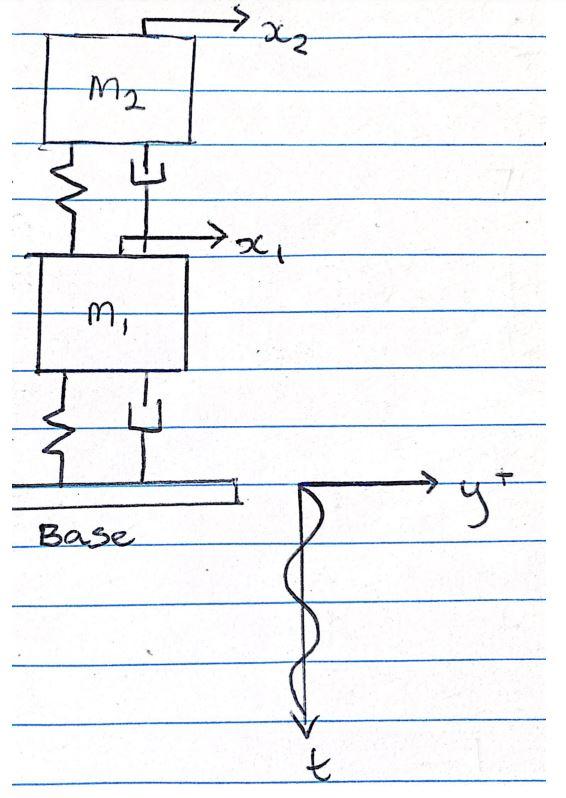 x₂
m₂
x₁
m₁
y⁺
Base
t